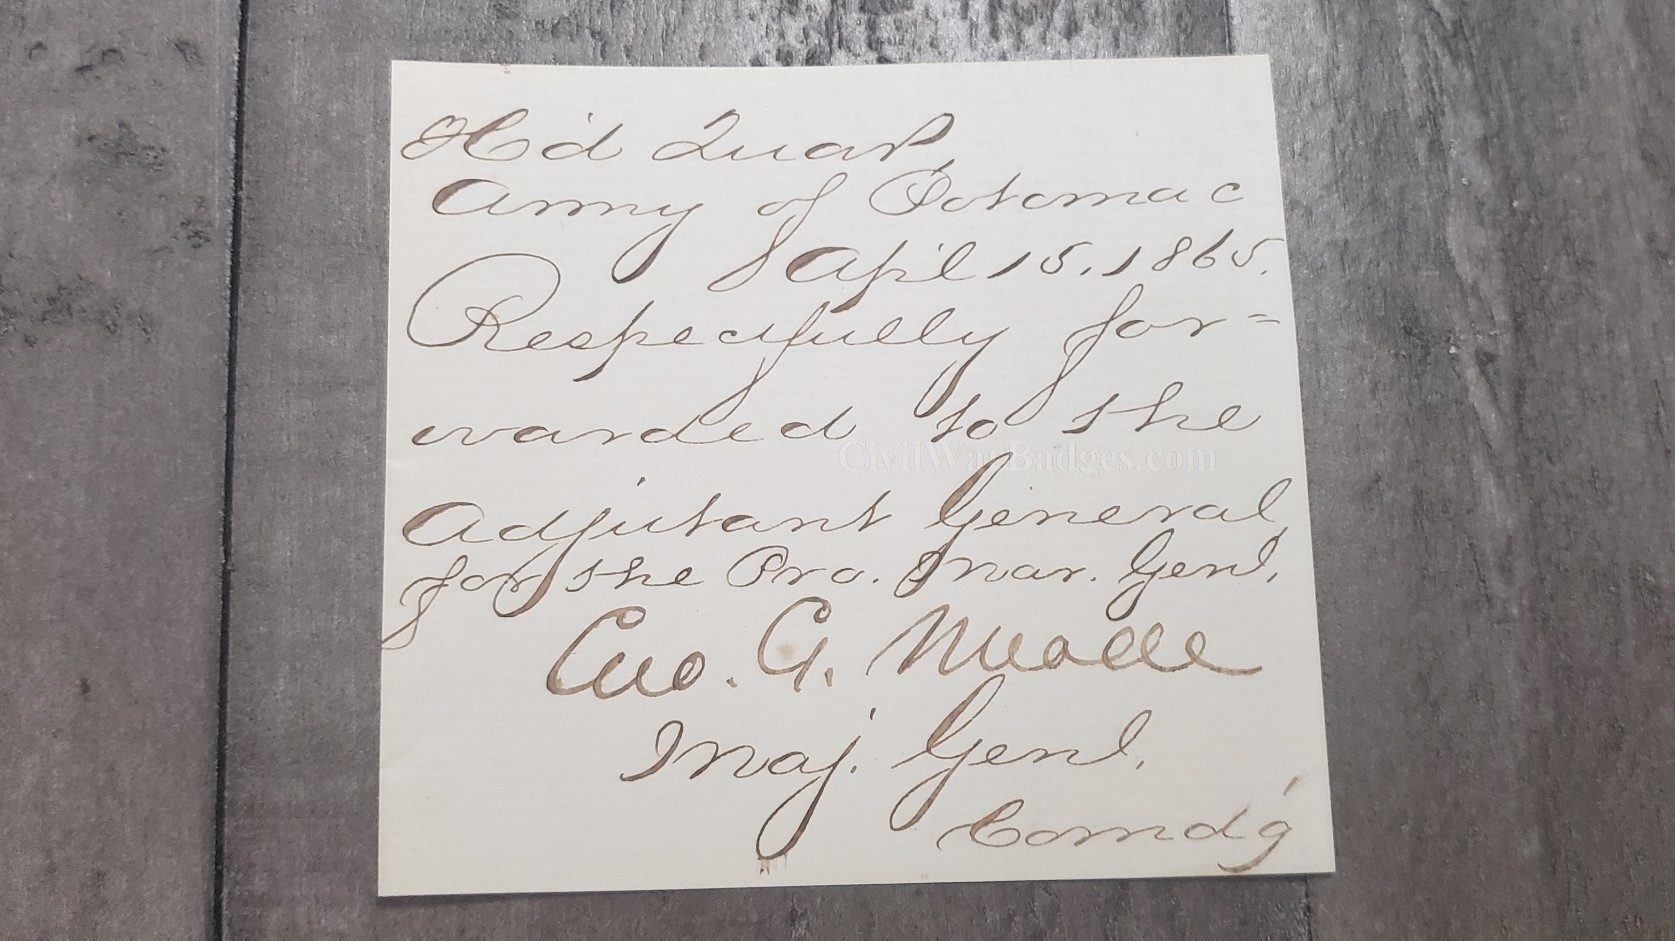 H'd Quar,
Army of Potomac
April 15. 1865.
Respectfully for=
warded to the
CivilWarBadges.com
Adjutant General
for the Pro. Mar. Genl.
Geo. G. Meade
Maj. Genl.
Comd'g